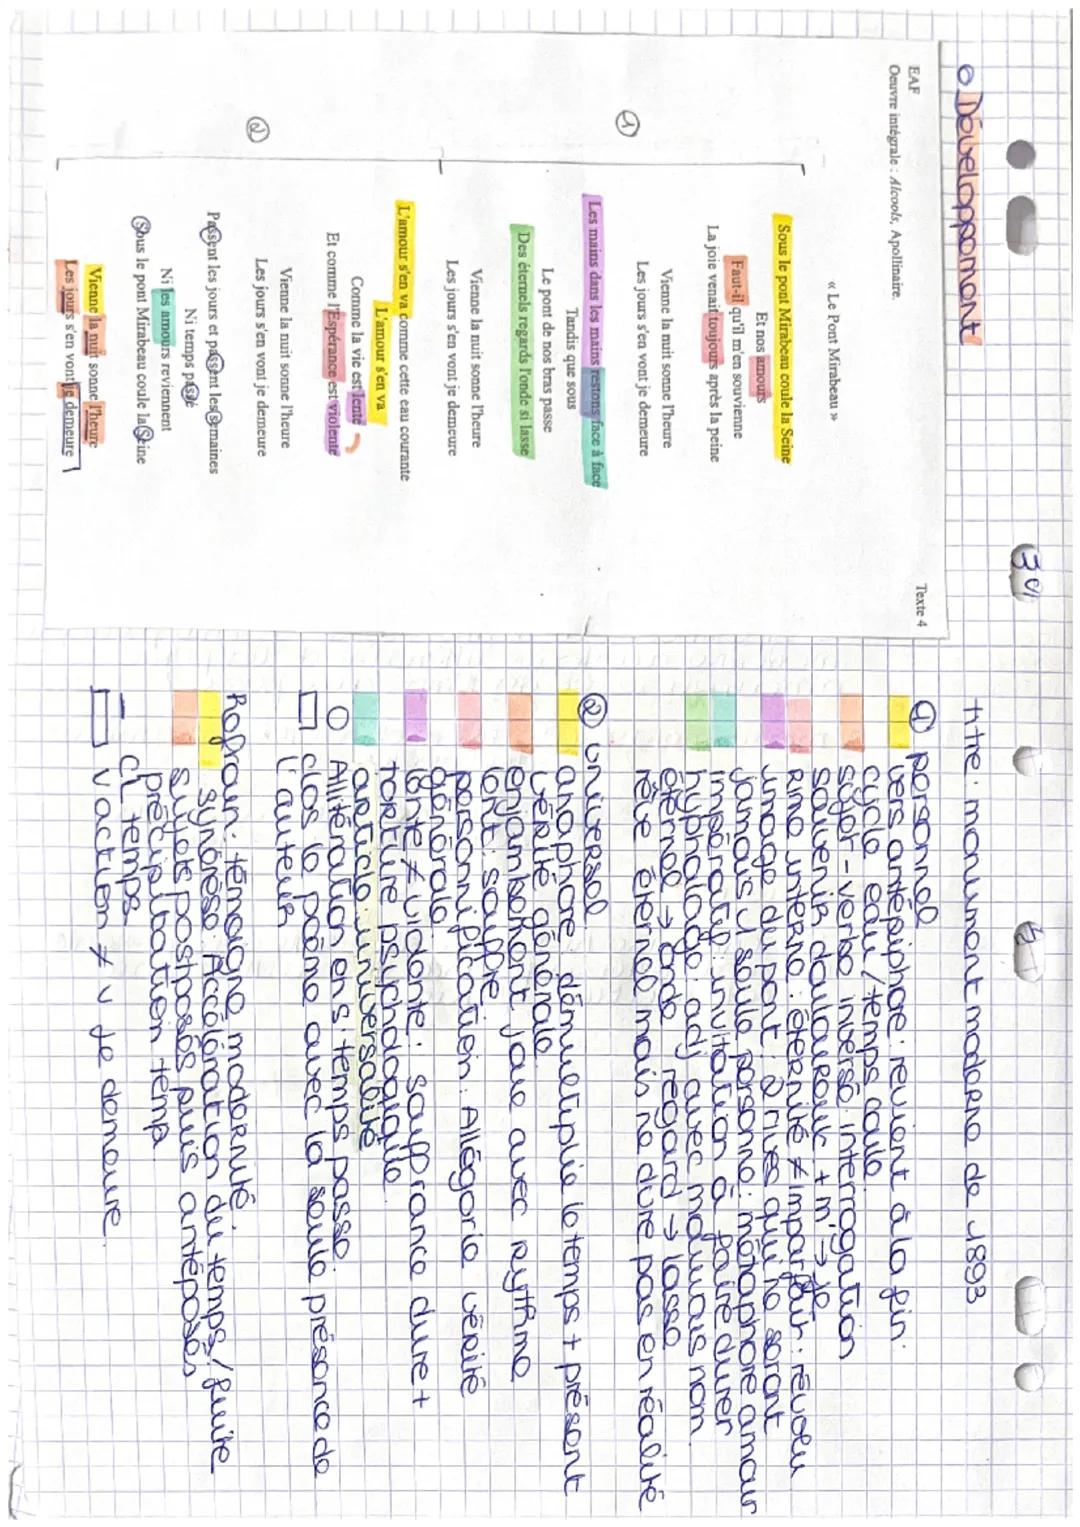 Développement
EAF
Oeuvre intégrale : Alcools, Apollinaire.
Texte 4
« Le Pont Mirabeau »
Sous le pont Mirabeau coule la Seine
Et nos amours
Faut-il qu'il m'en souvienne
La joie venait toujours après la peine
Vienne la nuit sonne l'heure
Les jours s'en vont je demeure
①
Les mains dans les mains restons face à face
Tandis que sous
Le pont de nos bras passe
Des éternels regards l'onde si lasse
Vienne la nuit sonne l'heure
Les jours s'en vont je demeure
L'amour s'en va comme cette eau courante
L'amour s'en va
Comme la vie est lente
Et comme l'Espérance est violente
Vienne la nuit sonne l'heure
Les jours s'en vont je demeure
②
Passent les jours et passent les semaines
Ni temps passé
Ni les amours reviennent
Sous le pont Mirabeau coule la Seine
Vienne la nuit sonne l'heure
Les jours s'en vont je demeure
titre : monument moderne de 1893
① personnel
vers antépiphore : revient à la fin.
cycle eau / temps coule.
sujet-verbe inversé interrogation
souvenir douloureux + m' → je
Rime interne : éternité ≠ imparfait : révolu
image du pont : 2 rives qui ne seront
jamais 1 seule personne : métaphore amour
impératif : invitation à faire durer
hypallage : adj avec mauvais nom
éternel → onde regard → lasse
rêve éternel mais ne dure pas en réalité
② universel
anaphore : démultiplie le temps + présent
vérité générale
enjambement jaune avec rythme
lent : souffre.
personnification : Allégorie vérité
générale.
lente ≠ violente : souffrance dure +
torture psychologique
article : universalité
Allitération en s : temps passe.
clos le poème avec la seule présence de
l'auteur
Refrain : témoigne modernité.
synérèse : Accélération du temps / fuite
sujets postposés puis antéposés
précipitation temp
CL temps
V action ≠ v je demeure.